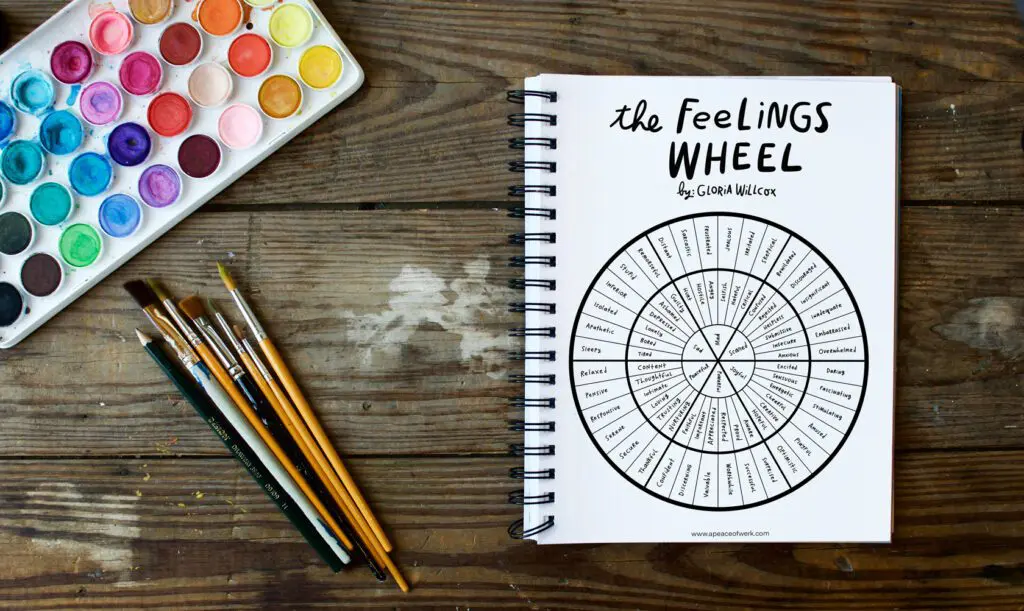 the FeeLiNGS
WHEEL
by: GLORIA WiLLCOX
Sleepy
Apathetic
Isolated
Inferior
Stupid
Remorseful
Distant
Sarcastic
Frustrated
Jealous
Irritated
Skeptical
Bewildered
Discouraged
Insignificant
Inadequate
Embarrassed
Overwhelmed
Daring
Fascinating
Stimulating
Amused
Playful
Optimistic
Surprised
Successful
Worthwhile
Valuable
Discerning
Confident
Thankful
Secure
Serene
Responsive
Pensive
Relaxed
Tired
Bored
Lonely
Depressed
Ashamed
Guilty
Hurt
Hostile
Angry
Selfish
Hateful
Critical
Confused
Rejected
Helpless
Submissive
Insecure
Anxious
Excited
Sensuous
Energetic
Cheerful
Creative
Hopeful
Aware
Proud
Respected
Appreciated
Important
Faithful
Nurturing
Trusting
Loving
Intimate
Thoughtful
Content
Sad
Mad
Scared
Joyful
Powerful
Peaceful
www.apeaceofwerk.com